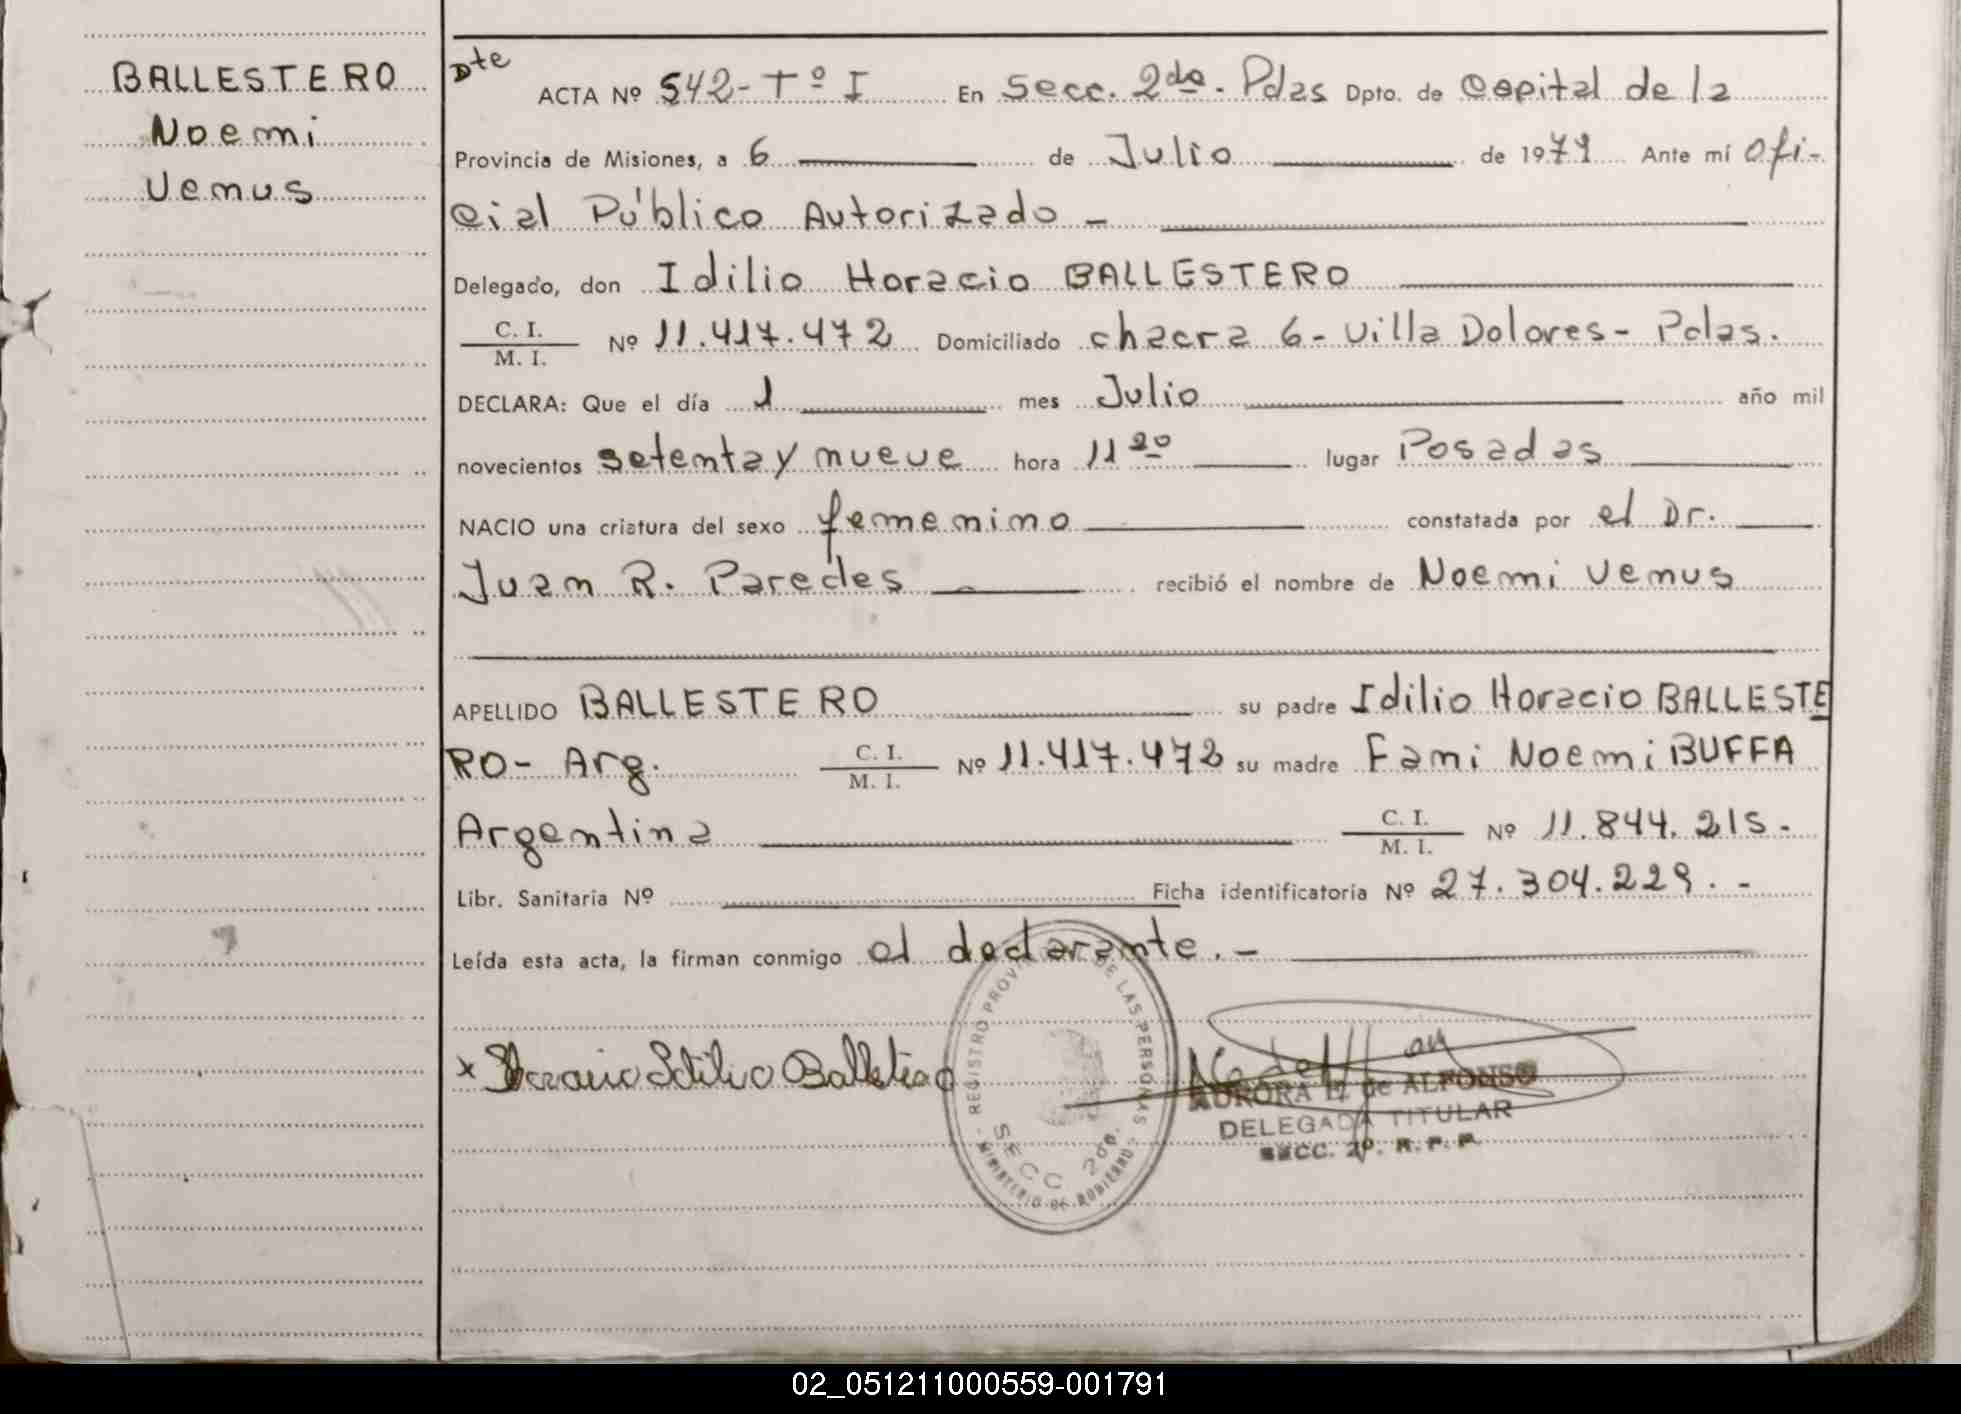 BALLESTERO
Noemi
Venus
Dte
ACTA Nº 542-Tº I En Secc. 2da. Pdas Dpto. de Capital de la
Provincia de Misiones, a 6 de Julio de 1979 Ante mí Ofi-
cial Público Autorizado -
Delegado, don Idilio Horacio BALLESTERO
C. I.
M. I.
Nº 11.417.472 Domiciliado chacra 6- Villa Dolores- Pdas.
DECLARA: Que el día 1 mes Julio año mil
novecientos setenta y nueve hora 11 20 lugar Posadas
NACIO una criatura del sexo femenino constatada por el Dr.
Juan R. Paredes recibió el nombre de Noemi Venus
APELLIDO BALLESTERO su padre Idilio Horacio BALLESTE
RO- Arg. C. I.
M. I. Nº 11.417.472 su madre Fani Noemi BUFFA
Argentina C. I.
M. I. Nº 11.844.215.-
Libr. Sanitaria Nº Ficha identificatoria Nº 27.304.229.-
Leída esta acta, la firman conmigo el declarante.-
x Horacio Idilio Ballestero
REGISTRO PROVINCIAL DE LAS PERSONAS
SECC 2da.
MINISTERIO DE GOBIERNO
AURORA de ALFONSO
DELEGADA TITULAR
SECC. 2º. R. P. P.
02_051211000559-001791